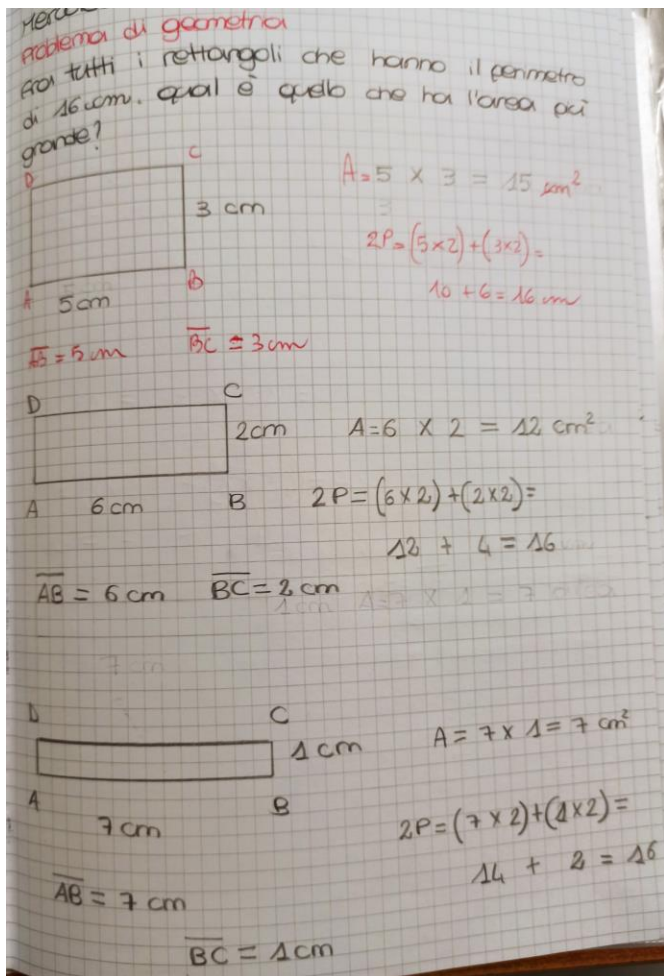 Problema di geometria
Fra tutti i rettangoli che hanno il perimetro
di 16 cm. qual è quello che ha l'area più
grande?
D C
A = 5 x 3 = 15 cm²
3 cm
2P = (5x2)+(3x2)=
A B
10 + 6 = 16 cm
5cm
AB = 5 cm BC = 3 cm
D C
2cm A = 6 x 2 = 12 cm²
A 6 cm B 2P = (6x2)+(2x2)=
12 + 4 = 16
AB = 6 cm BC = 2 cm
D C
1 cm A = 7 x 1 = 7 cm²
A B
7 cm 2P = (7x2)+(1x2)=
14 + 2 = 16
AB = 7 cm
BC = 1 cm